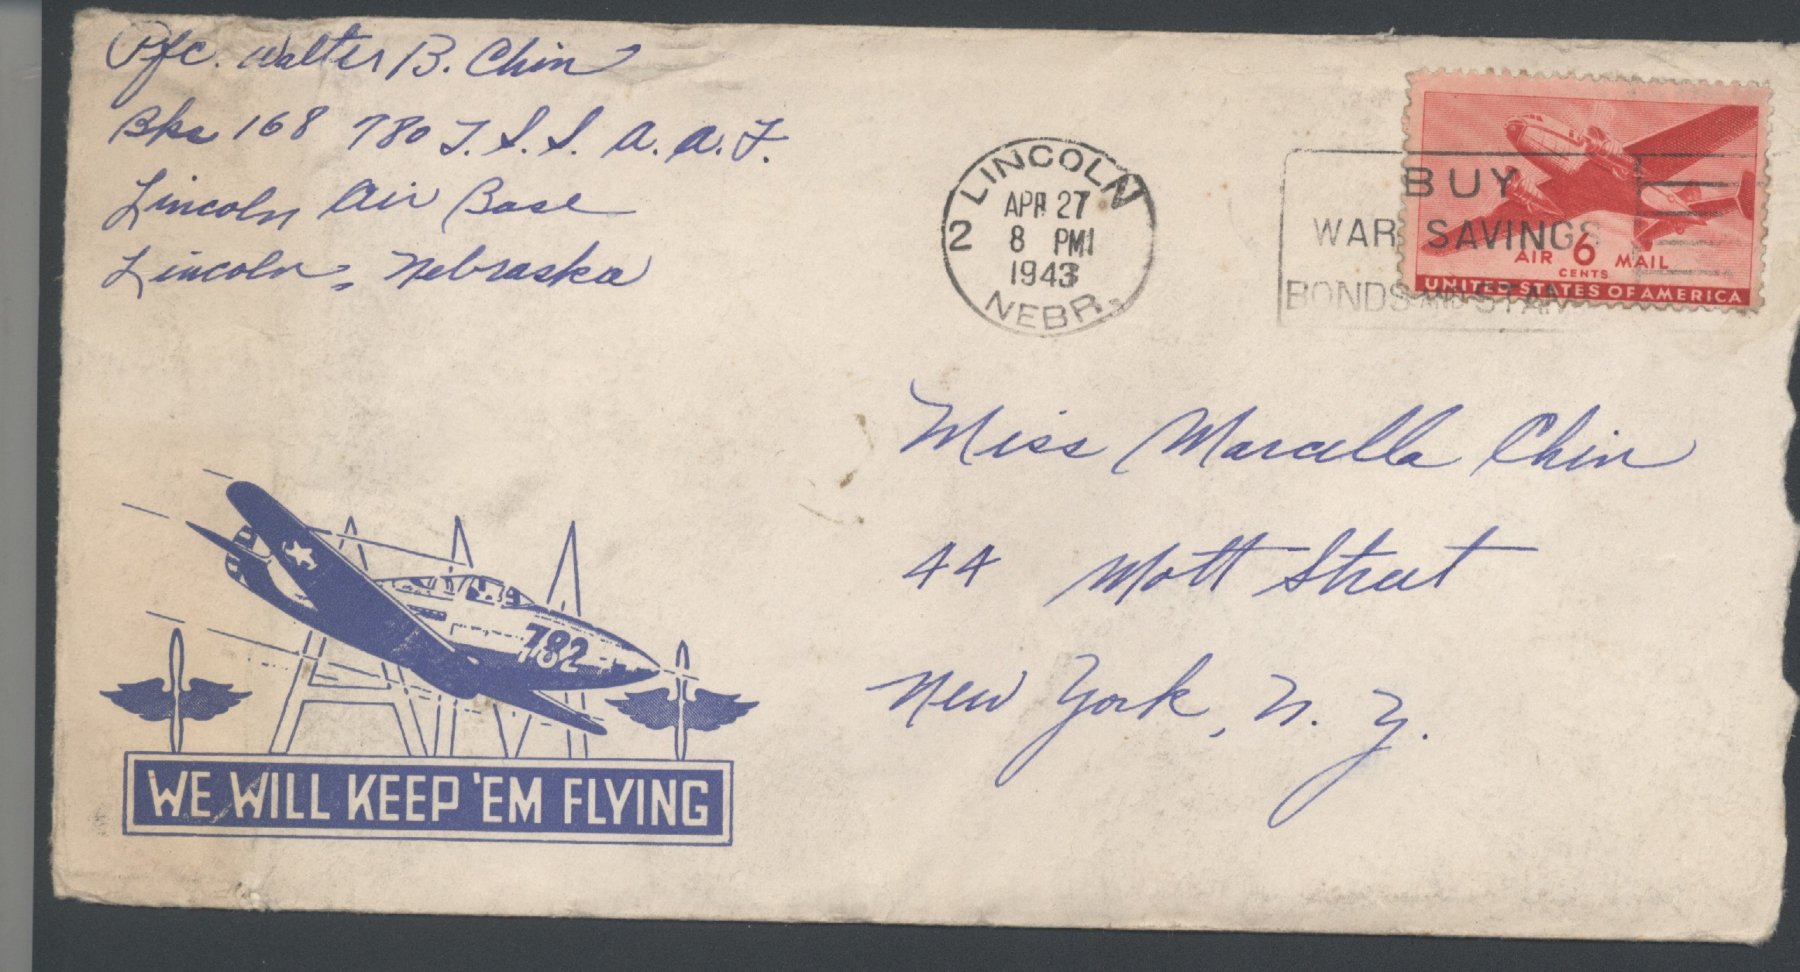 Pfc. Walter B. Chin
Bks 168 780 T.S.S. A.A.F.
Lincoln Air Base
Lincoln, Nebraska
2 LINCOLN NEBR.
APR 27
8 PM
1943
BUY
WAR SAVINGS
BONDS AND STAM
AIR 6 MAIL
CENTS
UNITED STATES OF AMERICA
Miss Marcella Chin
44 Mott Street
New York, N.Y.
782
WE WILL KEEP 'EM FLYING